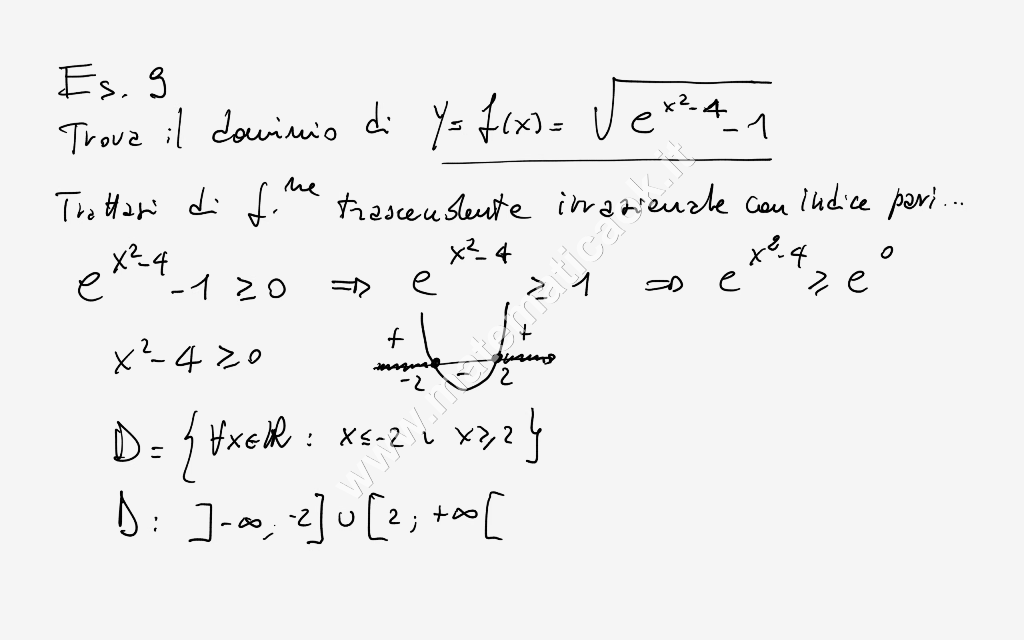 Es. 9
Trova il dominio di y = f(x) = √(e^(x²-4) - 1)
Trattasi di f.ne trascendente irrazionale con indice pari...
e^(x²-4) - 1 ≥ 0 ⇒ e^(x²-4) ≥ 1 ⇒ e^(x²-4) ≥ e^0
x² - 4 ≥ 0
+ - +
-2 2
D = { ∀x∈ℝ : x ≤ -2 ∪ x ≥ 2 }
D : ]-∞; -2] ∪ [2; +∞[
www.matematicaok.it